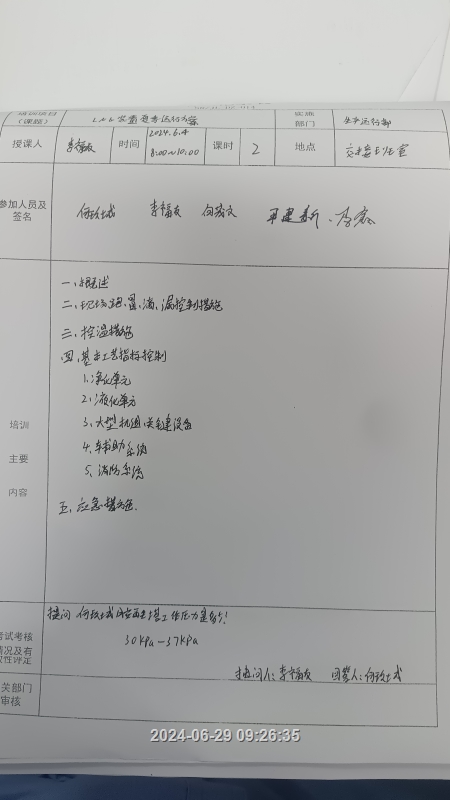 培训项目 LNG装置夏季运行方案 实施 生产运行部
(课题) 部门
授课人 李福友 时间 2024.6.4 课时 2 地点 交接班室
8:00~10:00
参加人员及
签名 李福友
一、概述
二、现场跑、冒、滴、漏控制措施
三、控温措施
四、基本工艺指标控制
1、净化单元
2、液化单元
3、大型机组、关键设备
4、辅助系统
5、消防系统
五、应急措施.
培训
主要
内容
提问 工作压力是多少!
30kPa—37kPa
考试考核
情况及有
效性评定
提问人:李福友 回答人:
关部门
审核
2024-06-29 09:26:35